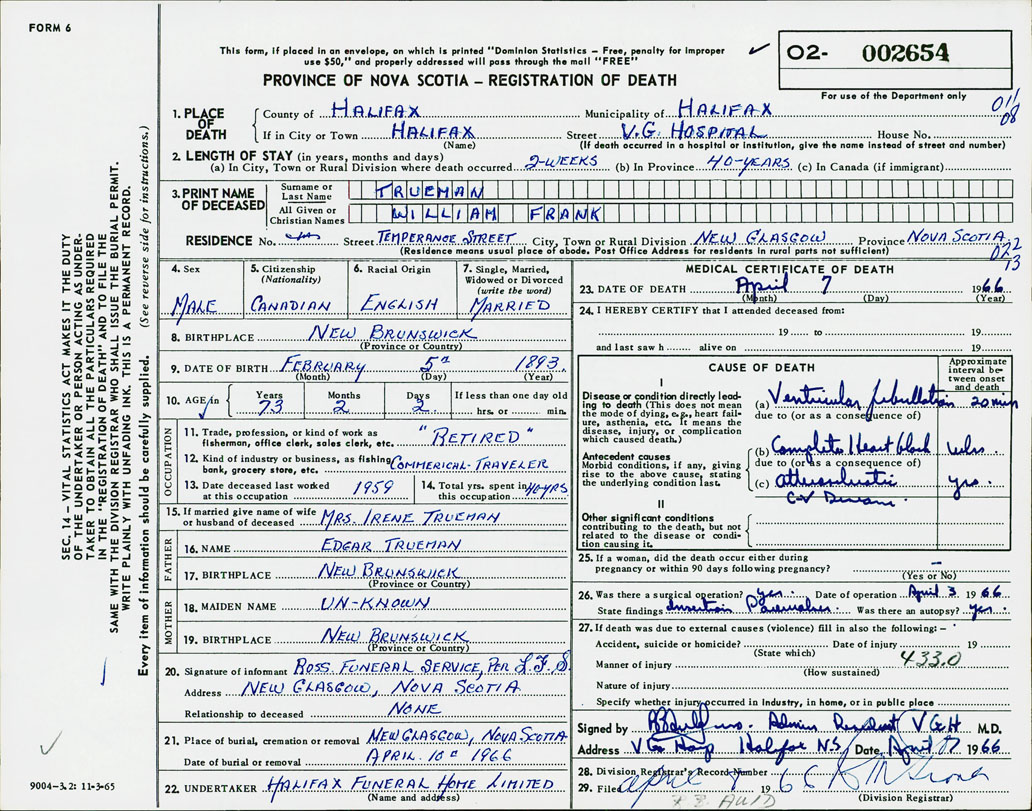 FORM 6
This form, if placed in an envelope, on which is printed "Dominion Statistics – Free, penalty for improper
use $50," and properly addressed will pass through the mail "FREE"
PROVINCE OF NOVA SCOTIA – REGISTRATION OF DEATH
O2- 002654
For use of the Department only
011
08
1. PLACE OF DEATH
County of HALIFAX Municipality of HALIFAX
If in City or Town HALIFAX Street V.G. HOSPITAL House No.
(Name) (If death occurred in a hospital or institution, give the name instead of street and number)
2. LENGTH OF STAY (in years, months and days)
(a) In City, Town or Rural Division where death occurred 2-WEEKS (b) In Province 40-YEARS (c) In Canada (if immigrant)
3. PRINT NAME OF DECEASED
Surname or Last Name TRUEMAN
All Given or Christian Names WILLIAM FRANK
RESIDENCE No. Street TEMPERANCE STREET City, Town or Rural Division NEW GLASGOW Province NOVA SCOTIA
(Residence means usual place of abode. Post Office Address for residents in rural parts not sufficient)
072
13
4. Sex
MALE
5. Citizenship
(Nationality)
CANADIAN
6. Racial Origin
ENGLISH
7. Single, Married,
Widowed or Divorced
(write the word)
MARRIED
8. BIRTHPLACE NEW BRUNSWICK
(Province or Country)
9. DATE OF BIRTH FEBRUARY 5th 1893
(Month) (Day) (Year)
10. AGE in Years 73 Months 2 Days 2 If less than one day old
hrs. or min.
OCCUPATION
11. Trade, profession, or kind of work as
fisherman, office clerk, sales clerk, etc. "RETIRED"
12. Kind of industry or business, as fishing
bank, grocery store, etc. COMMERICAL-TRAVELER
13. Date deceased last worked
at this occupation 1959
14. Total yrs. spent in
this occupation 40YRS
15. If married give name of wife
or husband of deceased MRS. IRENE TRUEMAN
FATHER
16. NAME EDGAR TRUEMAN
17. BIRTHPLACE NEW BRUNSWICK
MOTHER
18. MAIDEN NAME UN-KNOWN
19. BIRTHPLACE NEW BRUNSWICK
(Province or Country)
20. Signature of informant ROSS. FUNERAL SERVICE, PER L.F.S.
Address NEW GLASGOW, NOVA SCOTIA
Relationship to deceased NONE
21. Place of burial, cremation or removal NEW GLASGOW, NOVA SCOTIA
Date of burial or removal APRIL 10th 1966
22. UNDERTAKER HALIFAX FUNERAL HOME LIMITED
(Name and address)
MEDICAL CERTIFICATE OF DEATH
23. DATE OF DEATH April 7 1966
(Month) (Day) (Year)
24. I HEREBY CERTIFY that I attended deceased from:
19 to 19
and last saw h alive on 19
CAUSE OF DEATH
Approximate
interval be-
tween onset
and death
I
Disease or condition directly lead-
ing to death (This does not mean
the mode of dying, e.g., heart fail-
ure, asthenia, etc. It means the
disease, injury, or complication
which caused death.)
(a) Ventricular fibrillation 20 min
due to (or as a consequence of)
Antecedent causes
Morbid conditions, if any, giving
rise to the above cause, stating
the underlying condition last.
(b) Complete Heart block wks.
due to (or as a consequence of)
(c) yrs.
C-V Disease.
II
Other significant conditions
contributing to the death, but not
related to the disease or condi-
tion causing it.
25. If a woman, did the death occur either during
pregnancy or within 90 days following pregnancy? –
(Yes or No)
26. Was there a surgical operation? yes. Date of operation April 3 1966
State findings Insertion Pacemaker. Was there an autopsy? yes.
27. If death was due to external causes (violence) fill in also the following: –
Accident, suicide or homicide? Date of injury 19
(State which)
433.0
Manner of injury
(How sustained)
Nature of injury
Specify whether injury occurred in Industry, in home, or in public place
Signed by Admin Resident V G H M.D.
Address V G Hosp Halifax NS Date April 7 1966
28. Division Registrar's Record Number
29. Filed april 8 1966
(Division Registrar)
SEC. 14 – VITAL STATISTICS ACT MAKES IT THE DUTY
OF THE UNDERTAKER OR PERSON ACTING AS UNDER-
TAKER TO OBTAIN ALL THE PARTICULARS REQUIRED
IN THE "REGISTRATION OF DEATH" AND TO FILE THE
SAME WITH THE DIVISION REGISTRAR WHO SHALL ISSUE THE BURIAL PERMIT.
WRITE PLAINLY WITH UNFADING INK. THIS IS A PERMANENT RECORD.
Every item of information should be carefully supplied. (See reverse side for instructions.)
9004-3.2: 11-3-65